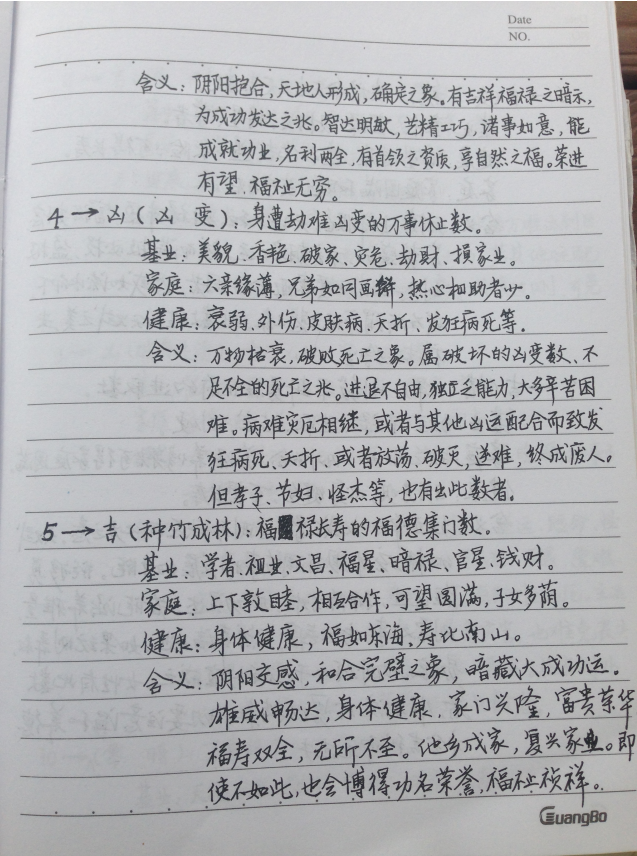 Date
NO.
含义：阴阳抱合，天地人形成，确定之象。有吉祥福禄之暗示，
为成功发达之兆。智达明敏，艺精工巧，诸事如意，能
成就功业，名利两全，有首领之资质，享自然之福。荣进
有望、福祉无穷。
4→凶（凶变）：身遭劫难凶变的万事休止数。
基业：美貌、香艳、破家、灾危、劫财、损家业。
家庭：六亲缘薄，兄弟如同画饼，热心相助者少。
健康：衰弱、外伤、皮肤病、夭折、发狂病死等.
含义：万物枯衰，破败死亡之象。属破坏的凶变数、不
足不全的死亡之兆。进退不自由，独立之能力，大多辛苦困
难。病难灾厄相继，或者与其他凶运配合而致发
狂病死、夭折、或者放荡、破灭，逆难，终成废人。
但孝子、节妇、怪杰等，也有出此数者。
5→吉（种竹成林）：福禄长寿的福德集门数。
基业：学者、祖业、文昌、福星、暗禄、官星、钱财.
家庭：上下敦睦，相互合作，可望圆满，子女多荫。
健康：身体健康，福如东海，寿比南山。
含义：阴阳交感，和合完壁之象，暗藏大成功运。
雄威畅达，身体健康，家门兴隆，富贵荣华
福寿双全，无所不至。他乡成家，复兴家业。即
使不如此，也会博得功名荣誉，福祉祯祥。
GuangBo